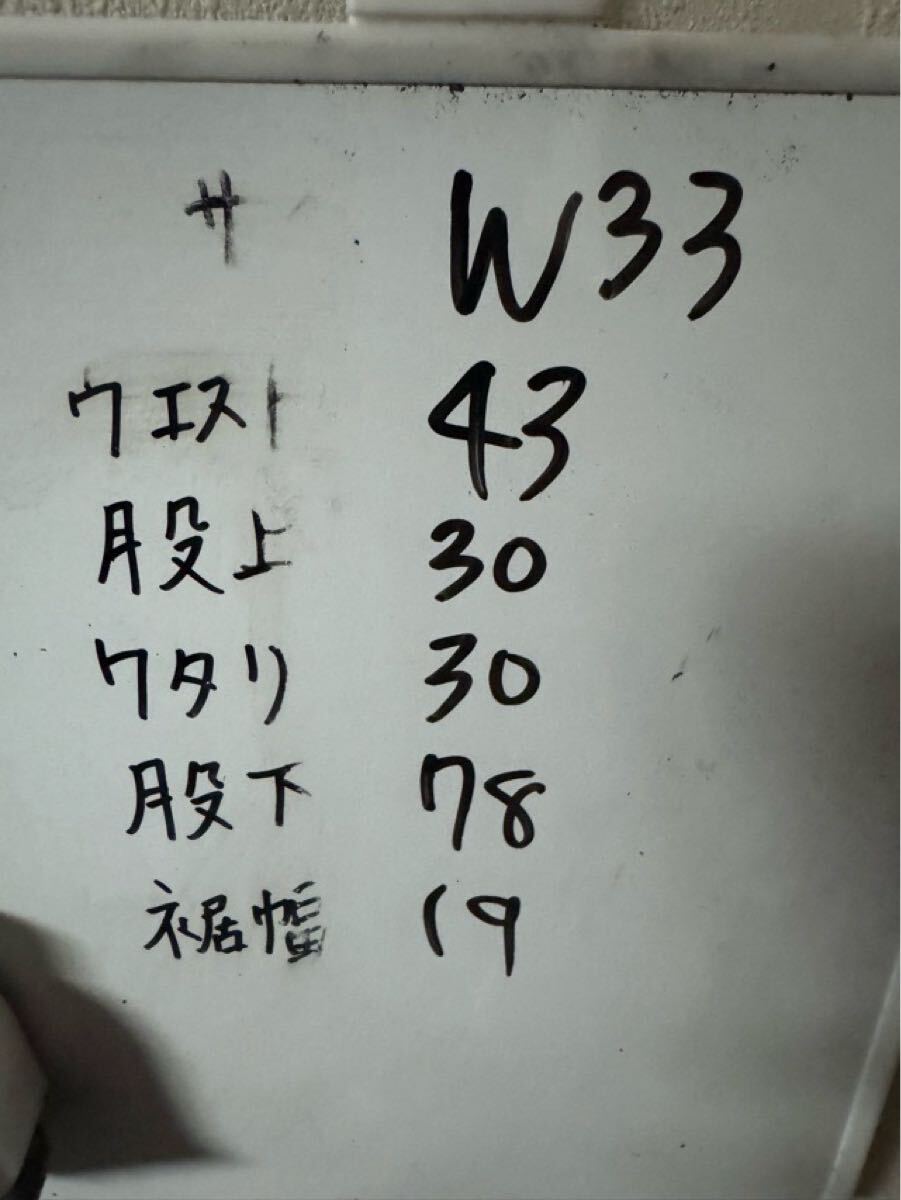 サ W33
ウエスト 43
股上 30
ワタリ 30
股下 78
裾幅 19